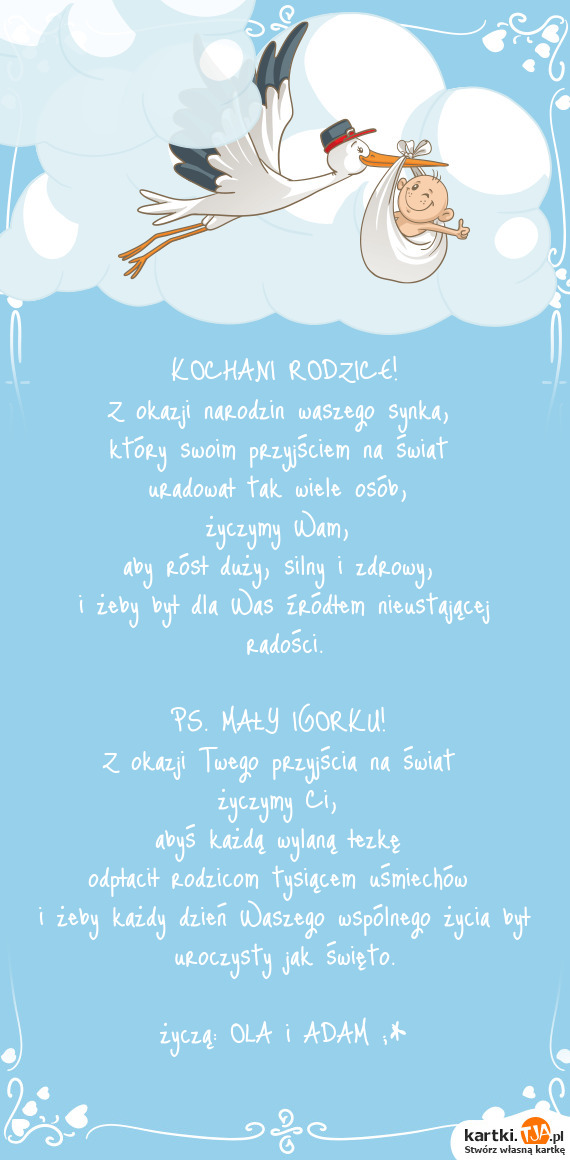 KOCHANI RODZICE!
Z okazji narodzin waszego synka,
który swoim przyjściem na świat
uradował tak wiele osób,
życzymy Wam,
aby rósł duży, silny i zdrowy,
i żeby był dla Was źródłem nieustającej
radości.
PS. MAŁY IGORKU!
Z okazji Twego przyjścia na świat
życzymy Ci,
abyś każdą wylaną łezkę
odpłacił rodzicom tysiącem uśmiechów
i żeby każdy dzień Waszego wspólnego życia był
uroczysty jak święto.
życzą: OLA i ADAM ;*
kartki.TJA.pl
Stwórz własną kartkę